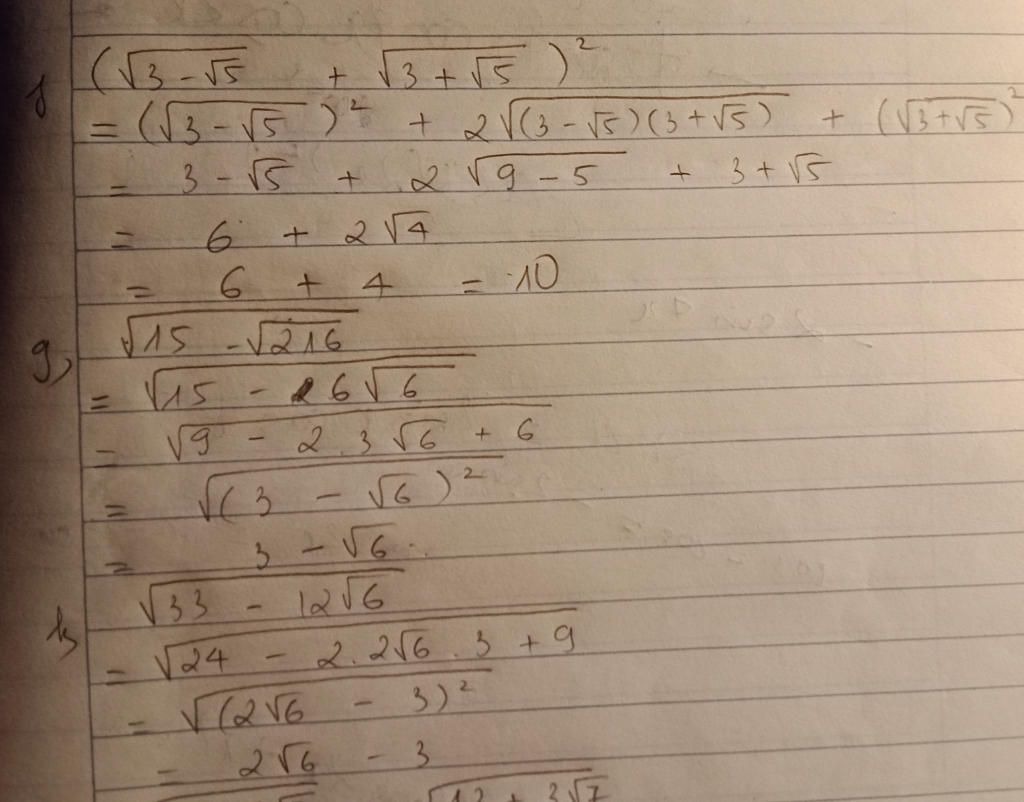 f, (√(3 - √5) + √(3 + √5))²
= (√(3 - √5))² + 2√((3 - √5)(3 + √5)) + (√(3 + √5))²
= 3 - √5 + 2√(9 - 5) + 3 + √5
= 6 + 2√4
= 6 + 4 = 10
g, √(15 - √216)
= √(15 - 6√6)
= √(9 - 2.3√6 + 6)
= √((3 - √6)²)
= 3 - √6
h, √(33 - 12√6)
= √(24 - 2.2√6.3 + 9)
= √((2√6 - 3)²)
= 2√6 - 3
√(12 + 3√7)